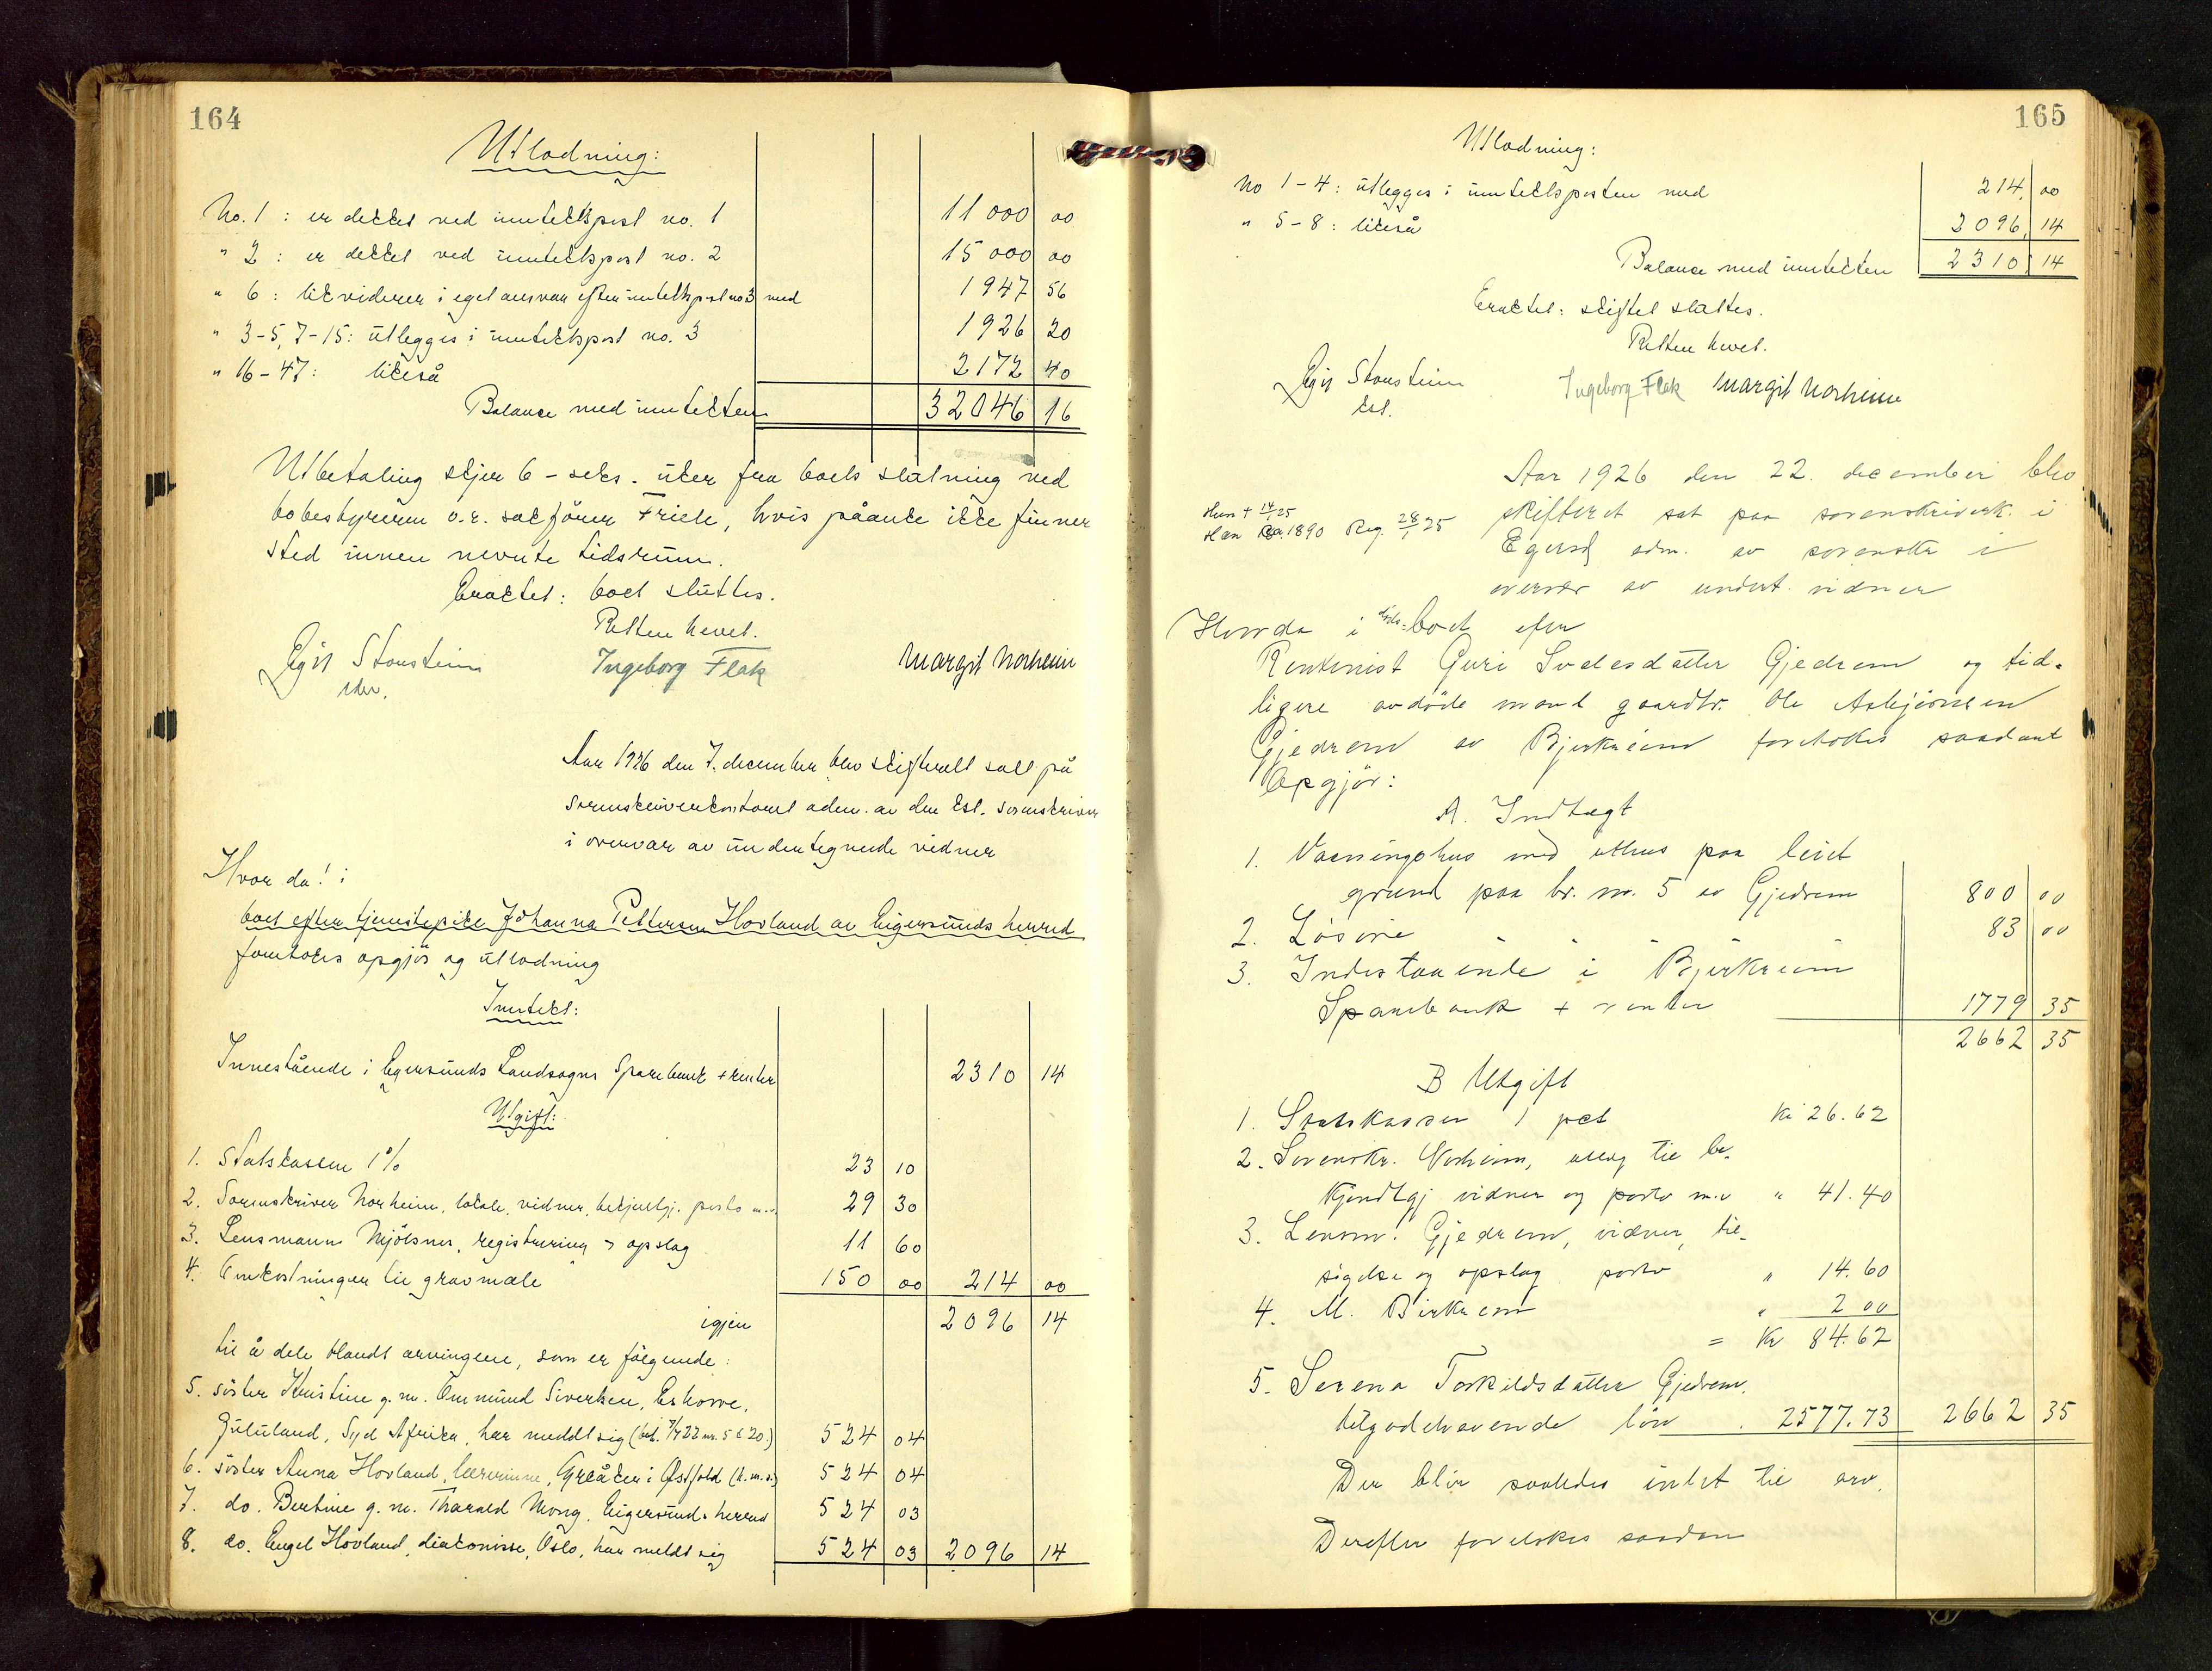 164
Utlodning:
No. 1 : er dekket ved inntektspost no. 1 11 000 00
" 2 : er dekket ved inntektspost no. 2 15 000 00
" 6 : likviderer i eget ansvar efter inntektspost no 3 med 1947 56
" 3-5, 7-15: utlegges i inntektspost no. 3 1926 20
" 16-47: likeså 2172 40
Balanse med inntekten 32046 16
Utbetaling skjer 6 - seks - uker fra boets slutning ved
bobestyreren o.r. sakfører Friele, hvis påanke ikke finner
sted innen nevnte tidsrum.
Eraktet: boet sluttes.
Retten hevet.
Egil Stousteim Ingeborg Flak Margit Norheim
Aar 1926 den 7. december blev skifterett satt på
sorenskriverkontoret adm. av den kst. sorenskriver
i overvær av undertegnede vidner
Hvor da! i
boet efter tjenestepike Johanna Pettersen Hovland av Eigersunds herred
foretokes opgjør og utlodning
Inntekt:
Innestående i Egersunds Landsogns Sparebank + renter 2310 14
Utgift:
1. Statskassen 1% 23 10
2. Sorenskriver Norheim, lokale, vidner, bekjentgj. porto m.v. 29 30
3. Lensmann Mjølsnes, registrering og opslag 11 60
4. Omkostninger til gravmæle 150 00 214 00
igjen 2096 14
til å dele blandt arvingene, som er følgende:
5. søster Kristine g. m. Ommund Sivertsen, Eshowe,
Zululand, Syd Afrika, har meldt sig 524 04
6. søster Anna Hovland, lærerinne, Greåker i Østfold (h.m.s.) 524 04
7. do. Bertine g. m. Tharald Mong, Eigersunds herred 524 03
8. do. Engel Hovland, diakonisse, Oslo, har meldt sig 524 03 2096 14
165
Utlodning:
No 1-4: utlegges i inntektsposten med 214, 00
" 5-8: likeså 2096, 14
Balanse med inntekten 2310 14
Eraktet: skiftet sluttes.
Retten hevet.
Egil Stousteim Ingeborg Flak Margit Norheim
kst.
Aar 1926 den 22. december blev
skifteret sat paa sorenskriverk. i
Egersd adm. av sorenskr i
overvær av undert. vidner
Hun + 14/1 25
Han ca. 1890 Reg. 28/1 25
Hvorda i døds-boet efter
Rentenist Guri Svalesdatter Gjedrem og tid-
ligere avdøde mand gaardbr. Ole Asbjørnsen
Gjedrem av Bjerkreim foretokes saadant
Opgjør:
A. Indtægt
1. Vaaningshus med uthus paa leiet
grund paa br. nr. 5 av Gjedrem 800 00
2. Løsøre 83 00
3. Indestaaende i Bjerkreim
Sparebank + renter 1779 35
2662 35
B Utgift
1. Statskassen 1 pct Kr 26.62
2. Sorenskr. Norheim, utlæg til be-
kjendtgj vidner og porto m.v " 41.40
3. Lensm. Gjedrem, vidner, til-
sigelse og opslag porto " 14.60
4. M. Birkrem " 2 00
= Kr 84.62
5. Serena Torkildsdatter Gjedrem,
tilgodehavende løn 2577.73 2662 35
Der blir saaledes intet til arv.
Derefter foretokes saadan